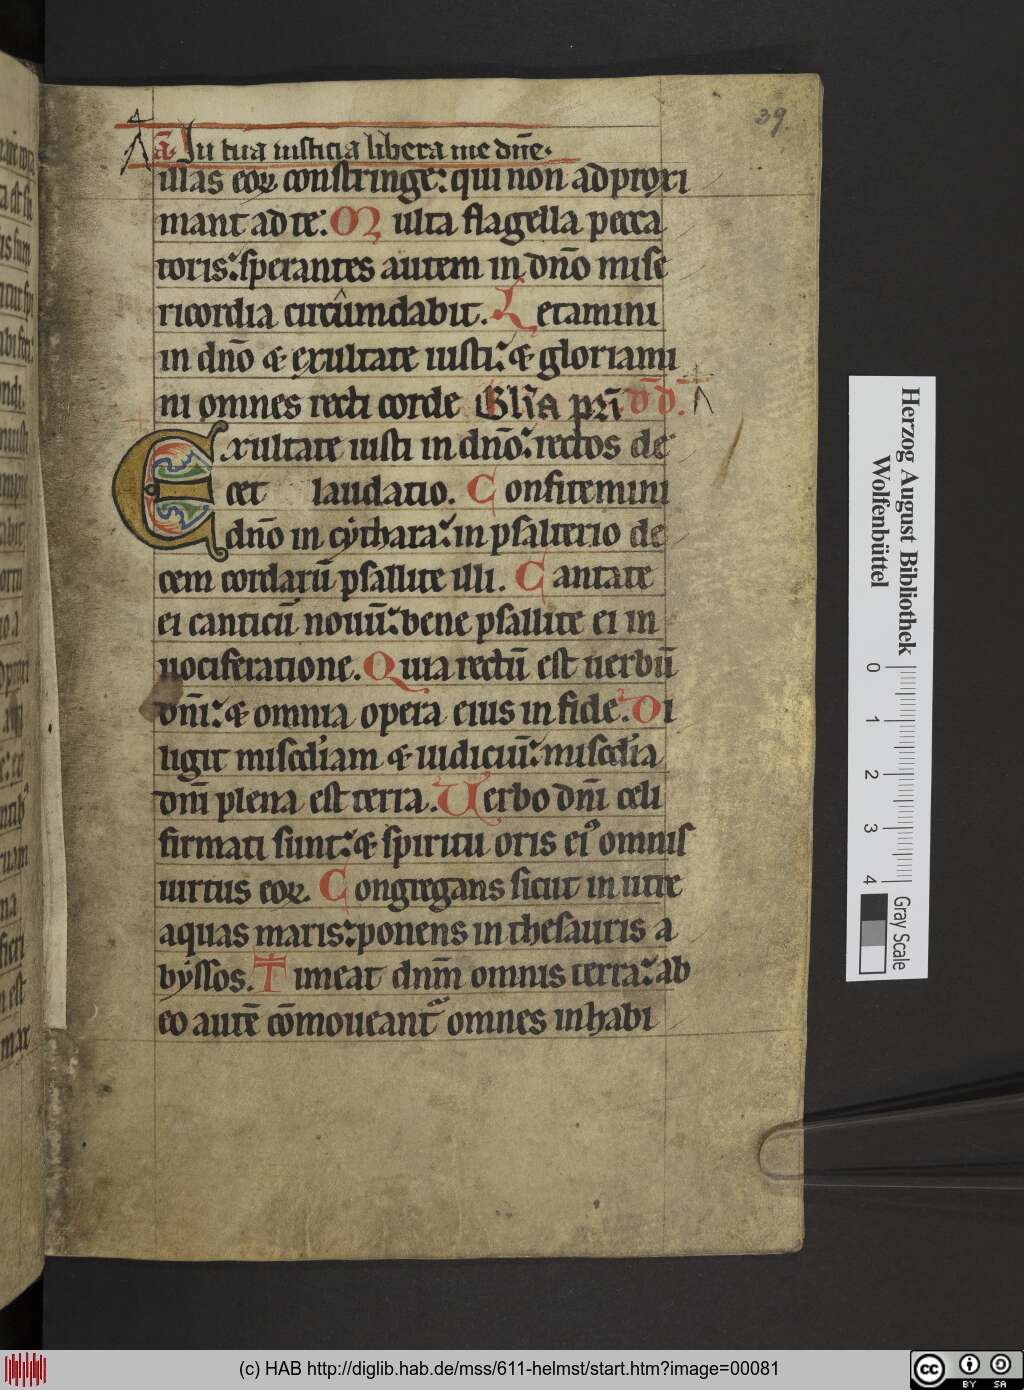 39
a̅. In tua iusticia libera me dn̅e.
illas eoꝝ constringe: qui non adproxi
mant ad te: Multa flagella pecca
toris: sperantes autem in dn̅o mise
ricordia circumdabit. Letamini
in dn̅o & exultate iusti: & gloriami
ni omnes recti corde Gl̅ia pr̅i d̅d̅.
Exultate iusti in dn̅o: rectos de
cet laudatio. Confitemini
dn̅o in cẏthara: in psalterio de
cem cordaru̅ psallite illi. Cantate
ei canticu̅ nouu̅: bene psallite ei in
uociferatione. Quia rectu̅ est uerbu̅
dn̅i: & omnia opera eius in fide. Di
ligit misc̅diam & iudiciu̅: misc̅dia
dn̅i plena est terra. Uerbo dn̅i celi
firmati sunt: & spiritu oris eiꝰ omnis
uirtus eoꝝ. Congregans sicut in utre
aquas maris: ponens in thesauris a
bẏssos. Timeat dnm̅ omnis terra: ab
eo aute̅ co̅moueant᷑ omnes inhabi
Herzog August Bibliothek
Wolfenbüttel
0 1 2 3 4
Gray Scale
(c) HAB http://diglib.hab.de/mss/611-helmst/start.htm?image=00081
cc BY SA